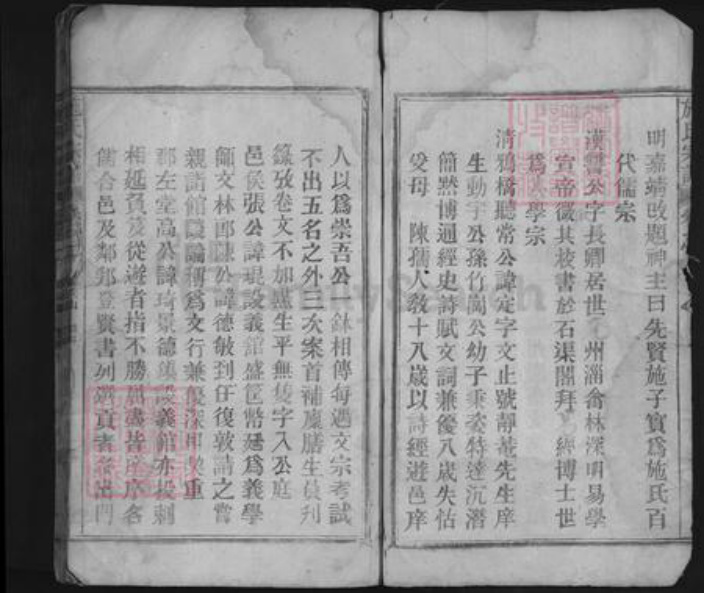 明嘉靖改題神主曰先賢施子實爲施氏百
代儒宗
漢讐公字長卿居世 州淄畲林深明易學
宣帝徵其校書於石渠閣拜 經博士世
爲 學宗
清鴉橋聽常公諱定字文止號靜菴先生庠
生動宇公孫竹閬公幼子秉姿特達沉潛
簡默博通經史詩賦文詞兼優八歲失怙
受母 陳孺人敎十八歲以詩經遊邑庠
人以爲崇吾公一鉢相傳每遇文宗考試
不出五名之外三次案首補廩膳生員刋
錄攷卷文不加 生平無隻字入公庭
邑侯張公諱琨設義館盛筐幣延爲義學
師文林郎陳公諱德敏到任復敦請之嘗
親詣館 論稱爲文行兼優深 重
郡左堂高公諱琦景德集設義館亦投刺
相延負 從遊者指不勝屈 皆 庠名
儒合邑及鄰邦登賢書列選貢者 出門